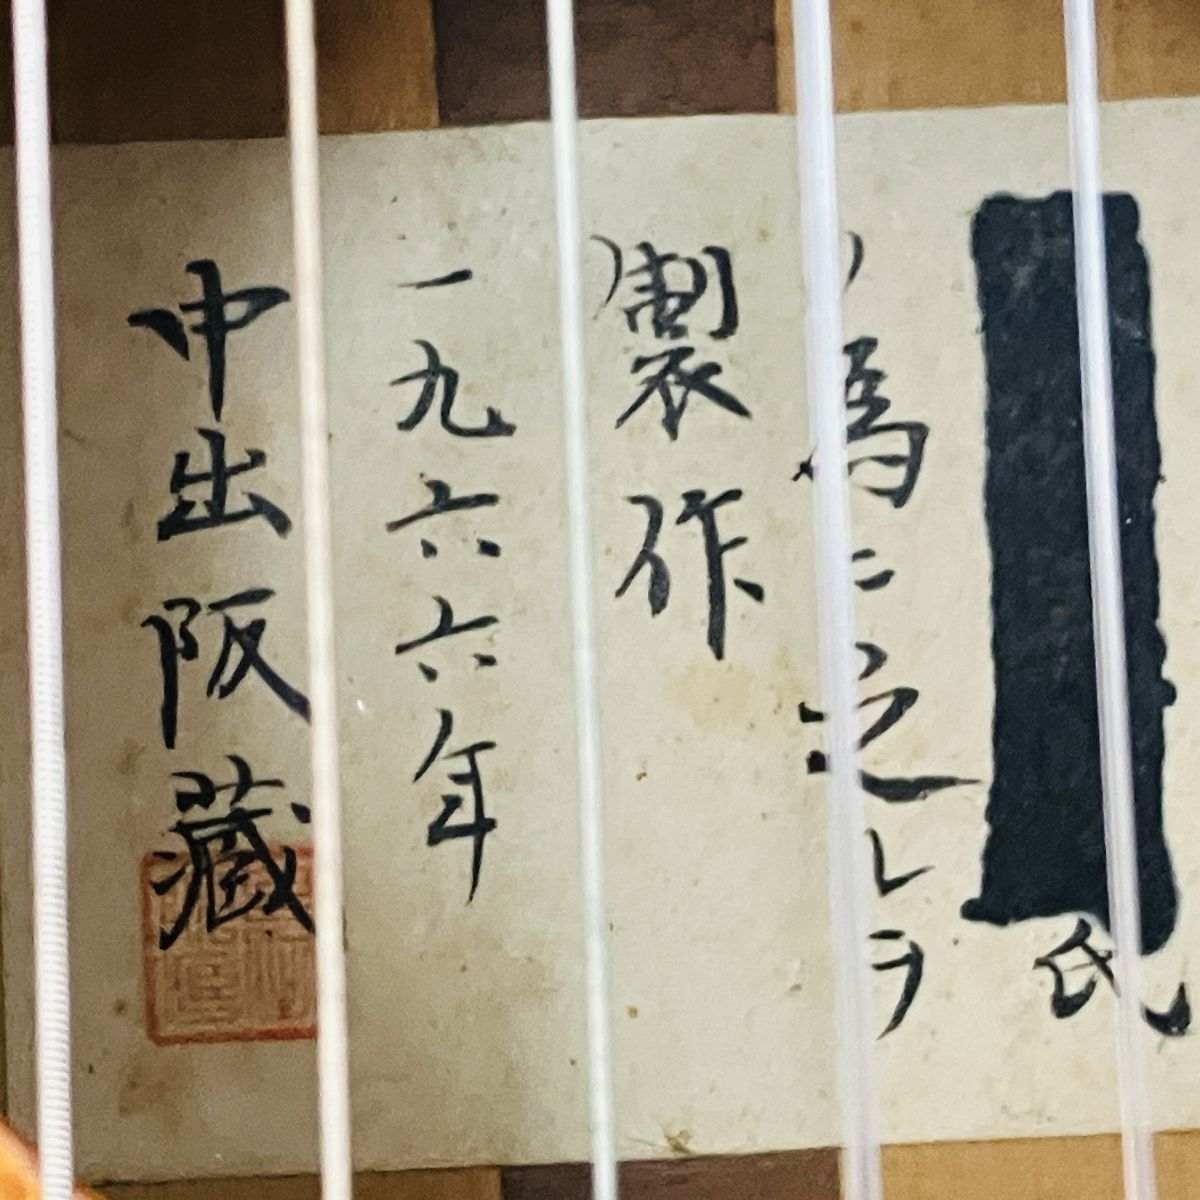 氏
ノ為ニ之レヲ
製作
一九六六年
中出阪藏